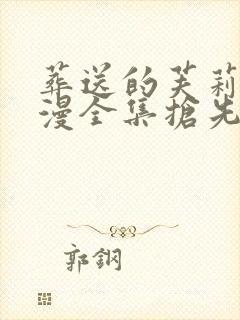 葬送的芙莉
漫全集搶先
郭鋼